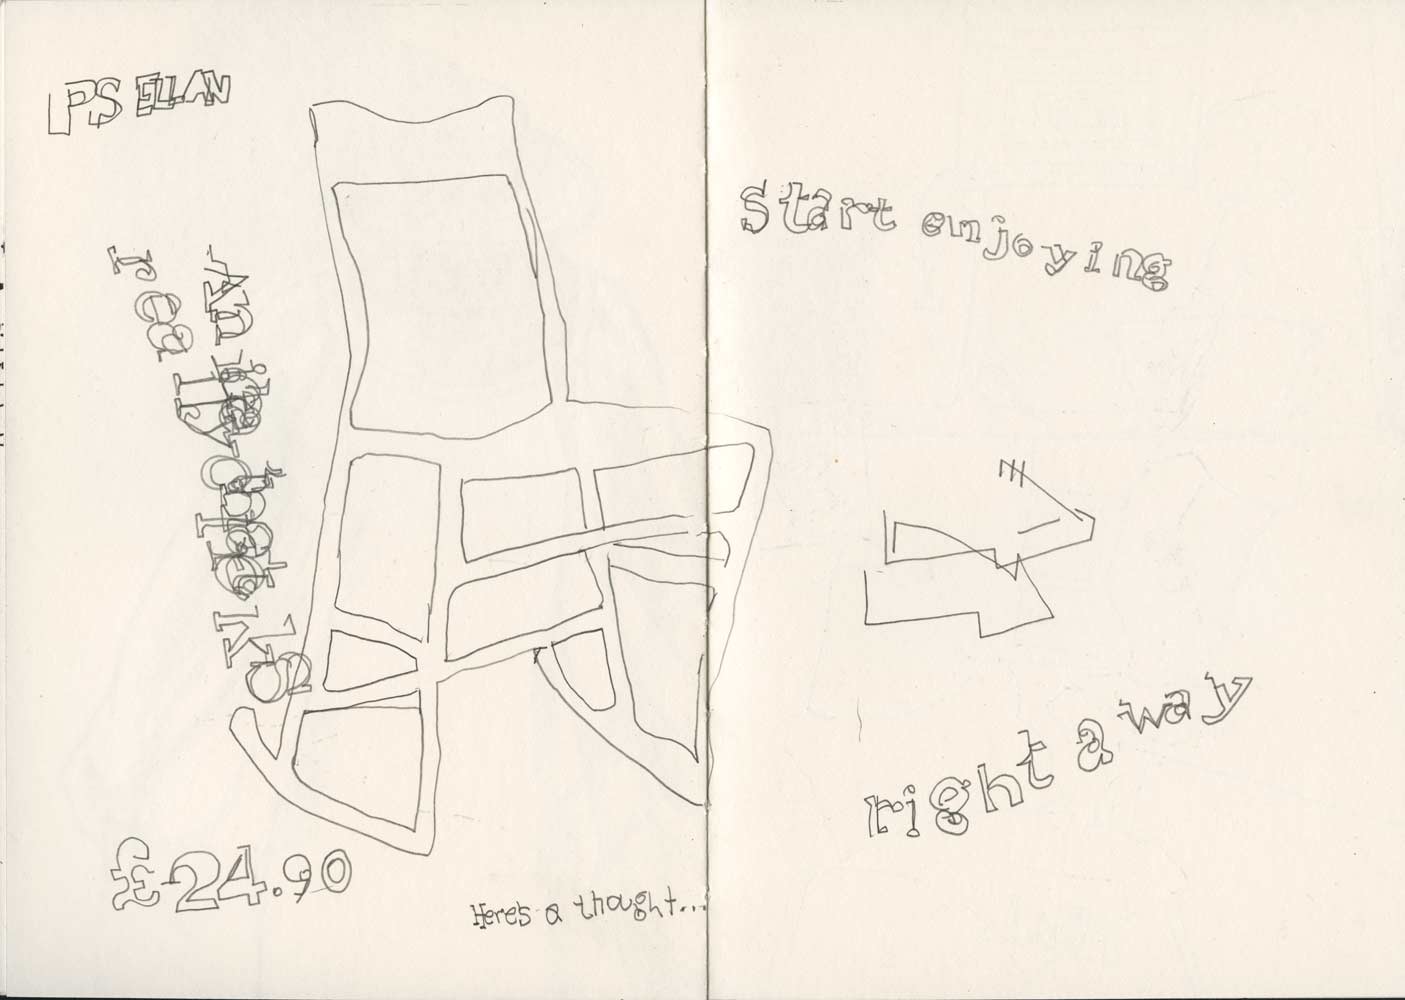 PS ELLAN
An
really
£24.90
Here's a thought...
Start enjoying
right a way